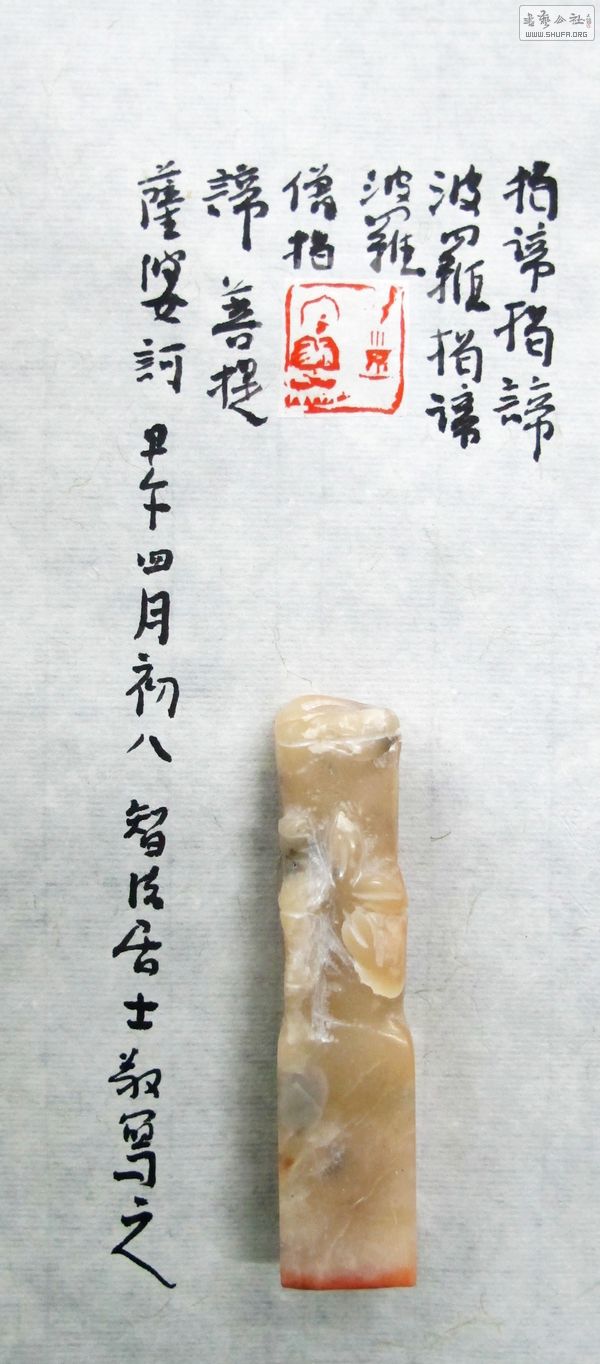 揭諦揭諦
波羅揭諦
波羅
僧揭
諦 菩提
薩婆訶 甲午四月初八 智法居士敬寫之
書藝公社
WWW.SHUFA.ORG